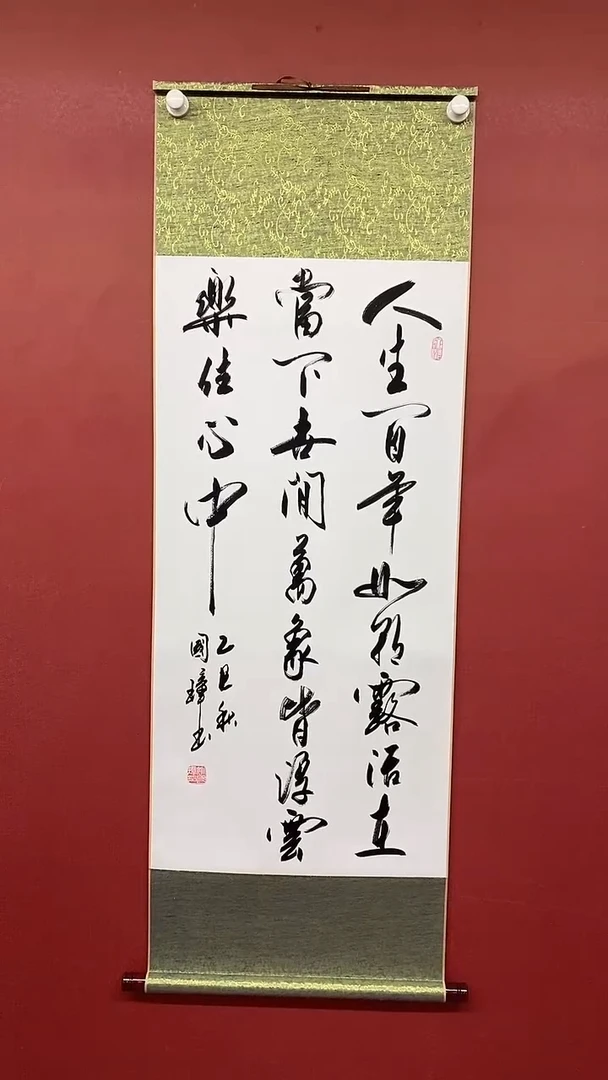 人生百年如朝露活在
當下世間萬象皆浮雲
樂住心中
乙丑秋
國璋書